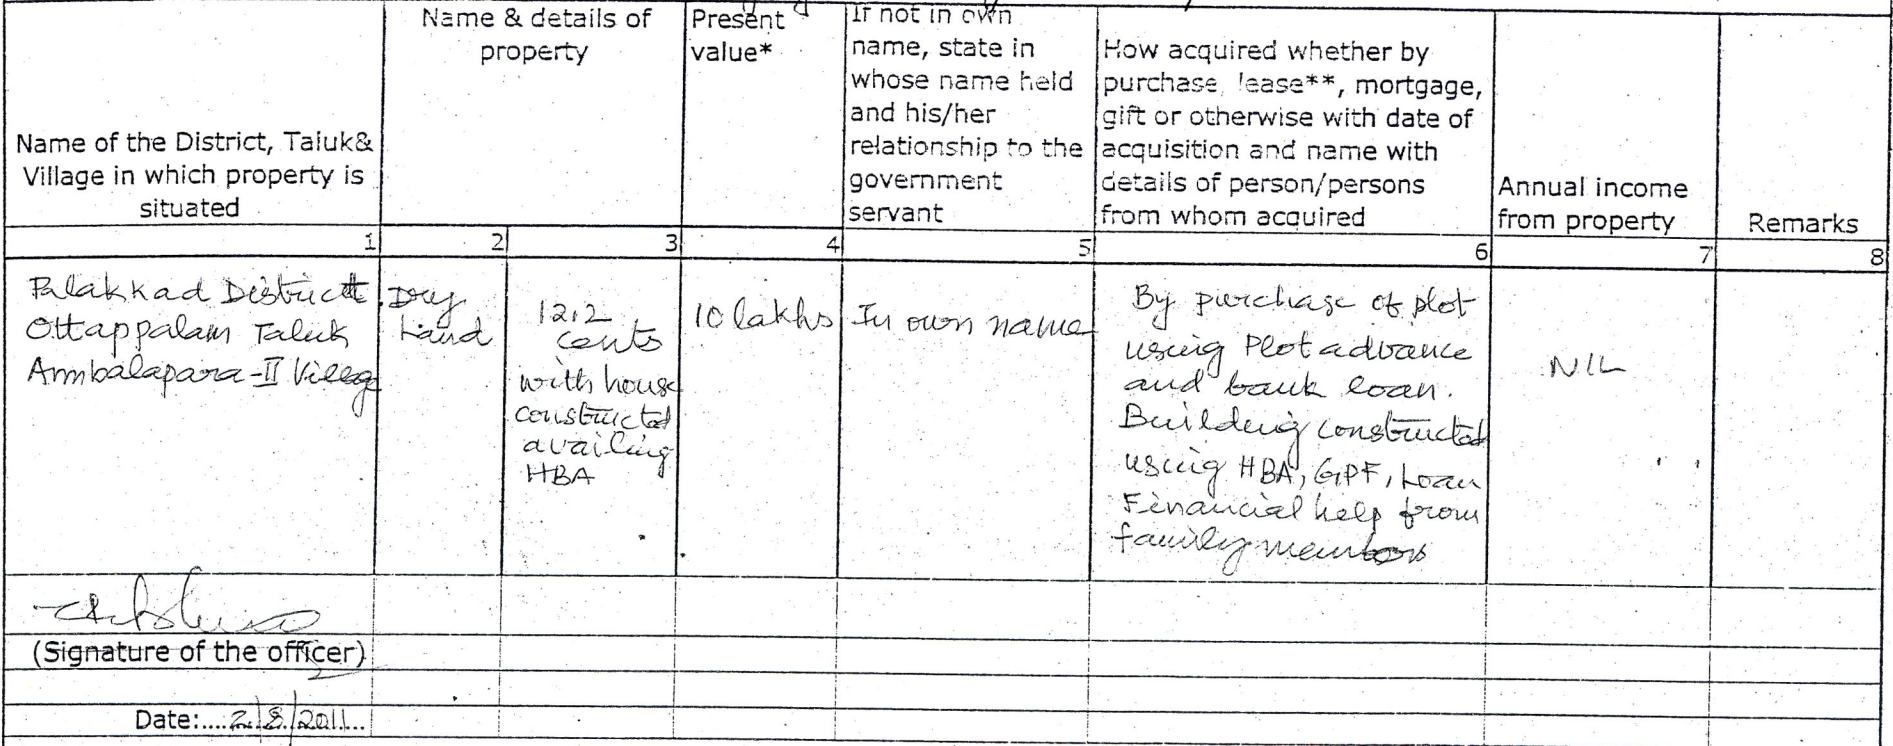 Name of the District, Taluk&
Village in which property is
situated
Name & details of
property
Present
value*
If not in own
name, state in
whose name held
and his/her
relationship to the
government
servant
How acquired whether by
purchase, lease**, mortgage,
gift or otherwise with date of
acquisition and name with
details of person/persons
from whom acquired
Annual income
from property
Remarks
1
2
3
4
5
6
7
8
Palakkad District
Ottappalam Taluk
Ambalapara-II Village
Dry
Land
12.2
Cents
with house
constructed
availing
HBA
10 lakhs
In own name
By purchase of plot
using Plot advance
and bank loan.
Building constructed
using HBA, GPF, Loan
Financial help from
family members
NIL
(Signature of the officer)
Date:....2/8/2011....